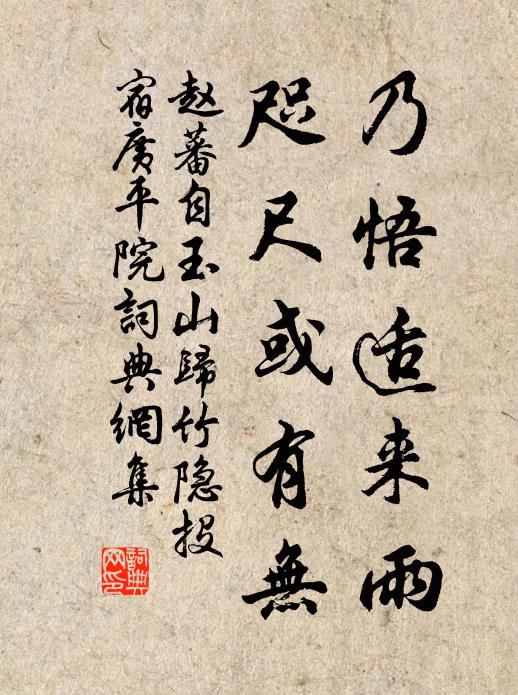 乃悟适来雨
咫尺或有無
赵蕃自玉山歸竹隐投
宿廣平院詞典網集
詞典网印